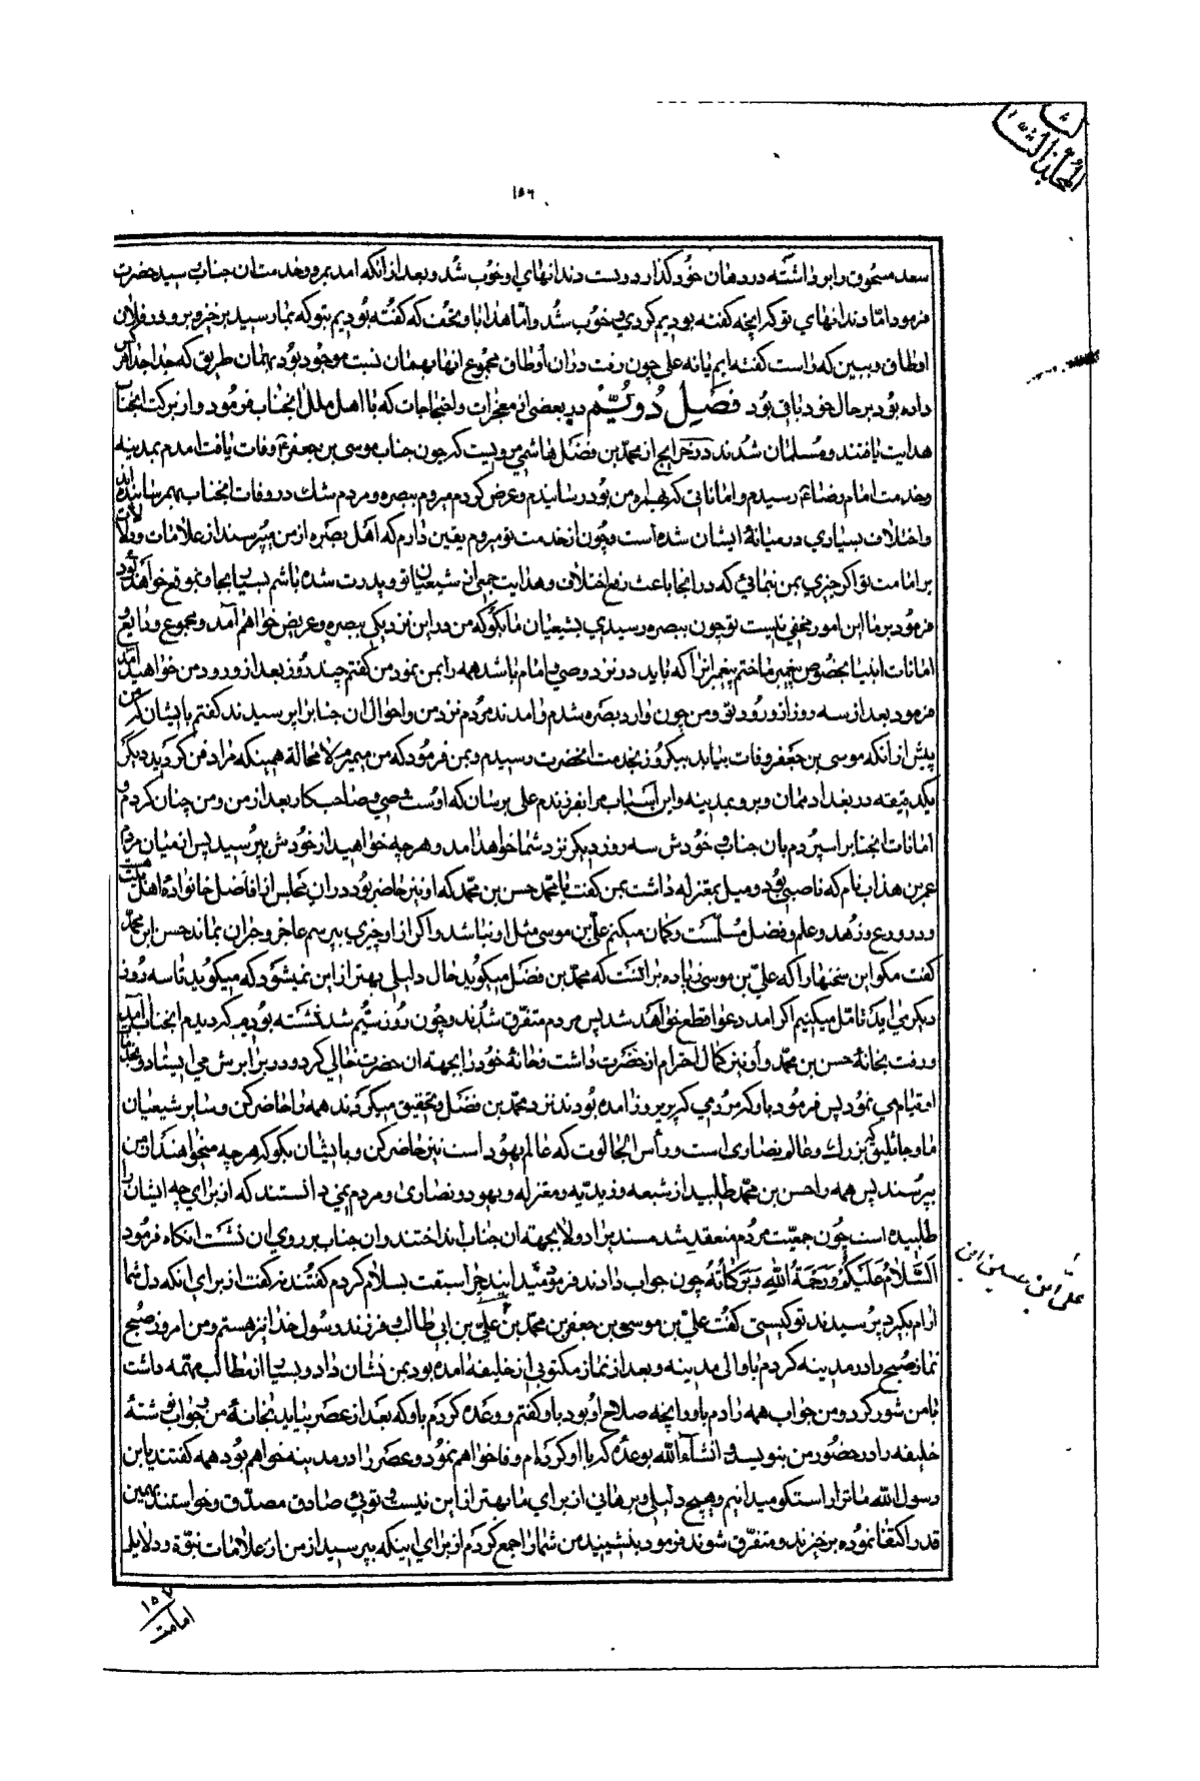 المجلد الثالث
١٥٦
سعد مسحوق را برداشته در دهان خود گذارد و بست دندانهای او خوب شد و بعد از آنکه آمد بمرو و خدمت آن جناب رسید حضرت
فرمود اما دندانهای تو که آنچه گفته بودیم کردی و خوب شد و اما هذا با و تحف که گفته بودیم بتو که بما رسید برخیز و برو در فلان
اوطاق و ببین که راست گفته ایم یا نه علی چون رفت در ان اوطاق مجموع آنها بهمان نسبت موجود بود بهمان طریق که جدا جدا قرار
داده بود بر حال خود باقی بود فصل دویم در بعضی از معجزات و احتجاجات که با اهل ملل آنجناب فرمود و از برکت آنجناب
هدایت یافتند و مسلمان شدند در خرایج از محمد بن فضل هاشمی مرویست که چون جناب موسی بن جعفر ع وفات یافت آمدم بمدینه
و خدمت امام رضا ع رسیدم و اماناتی که بهمراه من بود رسانیدم و عرض کردم میروم ببصره و مردم شک در وفات آنجناب بهمرسانیده اند
و اختلاف بسیاری در میانهٔ ایشان شده است و چون از خدمت تو میروم یقین دارم که اهل بصره از من میپرسند از علامات و دلالات
بر امامت تو اگر چیزی بمن بنمائی که در آنجا باعث رفع اختلاف و هدایت جمعی از شیعیان تو و پدرت شده باشم بسیار بجا و بموقع خواهد بود
فرمود بر ما این امور مخفی نیست تو چون ببصره رسیدی بشیعیان ما بگو که من در این نزدیکی ببصره و عریض خواهم آمد و مجموع ودایع
امانات انبیا بخصوص پیغمبر ما ختم پیغمبرانرا که باید در نزد وصی و امام باشد همه را بمن نمود من گفتم چند روز بعد از ورود من خواهید آمد
فرمود بعد از سه روز از ورود تو و من چون وارد بصره شدم و آمدند مردم نزد من و احوال آن جنابرا پرسیدند گفتم بایشان که من
پیش از انکه موسی بن جعفر وفات بیابد بیکروز بخدمت آنحضرت رسیدم و بمن فرمود که من میمیرم لا محالة همینکه مرا دفن کردید دیگر
یکدقیقه در بغداد ممان و برو بمدینه و این اسباب مرا بفرزندم علی برسان که اوست وصی و صاحب کار بعد از من و من چنان کردم و
امانات آنجنابرا سپردم بان جناب و خودش سه روز دیگر نزد شما خواهد آمد و هر چه خواهید از خودش بپرسید پس از میان مردم
عمر بن هذاب نام که ناصبی بود و میل بمعتزله داشت بمن گفت یا محمد حسن بن محمد که او نیز حاضر بود در آن مجلس از افاضل خانوادهٔ اهل بیت است
و در ورع و زهد و علم و فضل مسلمست و گمان میکنم علی بن موسی مثل او نباشد و اگر از او چیزی بپرسم عاجز و حیران بماند حسن ابن محمد
گفت مگو این سخنها را که علی بن موسی زیاده بر آنست که محمد بن فضل میگوید حال دلیلی بهتر از این نمیشود که میگوید تا سه روز
دیگر می اید تامل میکنیم اگر آمد دعوا قطع خواهد شد پس مردم متفرق شدند و چون روز سیم شد نشسته بودیم که دیدیم آنجناب آمد
و رفت بخانهٔ حسن بن محمد و او نیز کمال احترام از حضرت داشت و خانهٔ خود را بجهته ان حضرت خالی کرد و در برابرش می ایستاد و بخدمت
اقیام می نمود پس فرمود باو که مردمی که پریروز آمده بودند نزد محمد بن فضل و تحقیق میکردند همه را حاضر کن و سایر شیعیان
ما و جاثلیق که بزرگ و عالم نصاری است و رأس الجالوت که عالم یهود است نیز حاضر کن و بایشان بگو که هر چه میخواهند از من
بپرسند پس همه را حسن بن محمد طلبید از شیعه و زیدیه و معتزله و یهود و نصاری و مردم نمی دانستند که از برای چه ایشان را
طلبیده است چون جمعیت مردم منعقد شد مسند برادولا بجهته آن جناب انداختند و آن جناب بر روی ان نشست آنگاه فرمود
السلام علیکم و رحمة الله و برکاته چون جواب دادند فرمود میدانید چرا سبقت بسلام کردم گفتند نه گفت از برای آنکه دل شما
آرام بگیرد پرسیدند تو کیستی گفت علی بن موسی بن جعفر بن محمد بن علی بن ابی طالب و فرزند رسول خدا نیز هستم و من امروز صبح
نماز صبح را در مدینه کردم با والی مدینه و بعد از نماز مکتوبی از خلیفه آمده بود بمن نشان داد و بسیار از مطالب مهمه داشت
با من شور کرد و من جواب همه را دادم باو و آنچه صلاح او بود باو گفتم و وعده کردم باو که بعد از عصر بیاید بخانهٔ من و جواب نوشتهٔ
خلیفه را در حضور من بنویسد و انشاء الله بوعدهٔ که با او کرده ام وفا خواهم نمود و عصر را در مدینه خواهم بود همه گفتند یابن
رسول الله ما ترا راستگو میدانیم و هیچ دلیلی و برهانی از برای ما بهتر از این نیست و توئی صادق مصدق و خواستند بهمین
قدر اکتفا نموده برخیزند و متفرق شوند فرمود بنشینید من شما را جمع کردم از برای اینکه بپرسید از من از علامات نبوة و دلایل
علی ابن حسین ابن
١٥٧
امامت